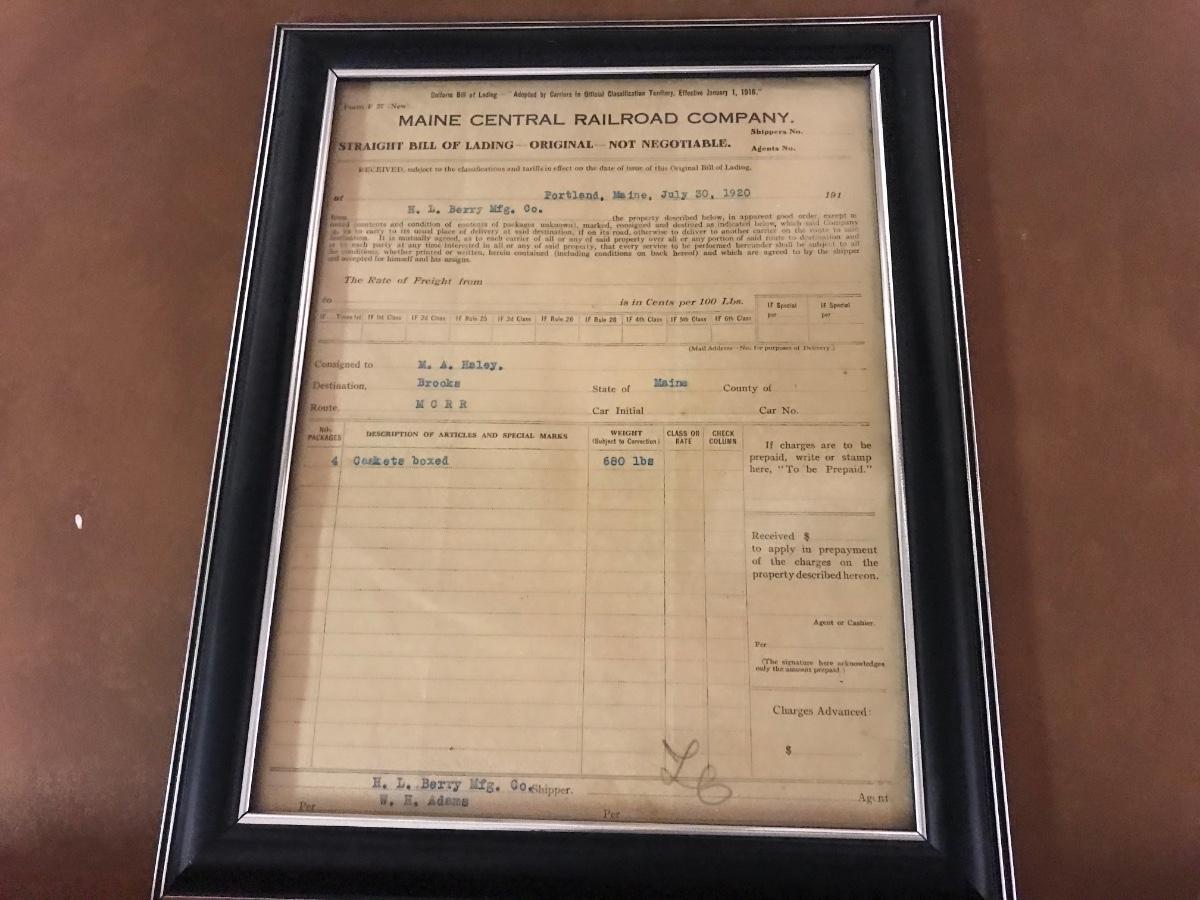 Uniform Bill of Lading — "Adopted by Carriers in Official Classification Territory, Effective January 1, 1916."
Form F 27 (New)
MAINE CENTRAL RAILROAD COMPANY.
Shippers No.
STRAIGHT BILL OF LADING—ORIGINAL—NOT NEGOTIABLE.
Agents No.
RECEIVED, subject to the classifications and tariffs in effect on the date of issue of this Original Bill of Lading,
at Portland, Maine, July 30, 1920 191
H. L. Berry Mfg. Co.
from the property described below, in apparent good order, except as
noted (contents and condition of contents of packages unknown), marked, consigned and destined as indicated below, which said Company
to carry to its usual place of delivery at said destination, if on its road, otherwise to deliver to another carrier on the route to said
destination. It is mutually agreed, as to each carrier of all or any of said property over all or any portion of said route to destination and
as to each party at any time interested in all or any of said property, that every service to be performed hereunder shall be subject to all
the conditions, whether printed or written, herein contained (including conditions on back hereof) and which are agreed to by the shipper
and accepted for himself and his assigns.
The Rate of Freight from
to is in Cents per 100 Lbs.
IF Special per IF Special per
IF Times 1st IF 1st Class IF 2d Class IF Rule 25 IF 3d Class IF Rule 26 IF Rule 28 IF 4th Class IF 5th Class IF 6th Class
(Mail Address—Not for purposes of Delivery.)
Consigned to M. A. Haley.
Destination, Brooks State of Maine County of
Route, M C R R Car Initial Car No.
NO. PACKAGES DESCRIPTION OF ARTICLES AND SPECIAL MARKS WEIGHT (Subject to Correction) CLASS OR RATE CHECK COLUMN
4 Caskets boxed 680 lbs
If charges are to be
prepaid, write or stamp
here, "To be Prepaid."
Received $
to apply in prepayment
of the charges on the
property described hereon.
Agent or Cashier.
Per
(The signature here acknowledges
only the amount prepaid.)
Charges Advanced:
$
H. L. Berry Mfg. Co. Shipper. Agent
Per W. H. Adams Per